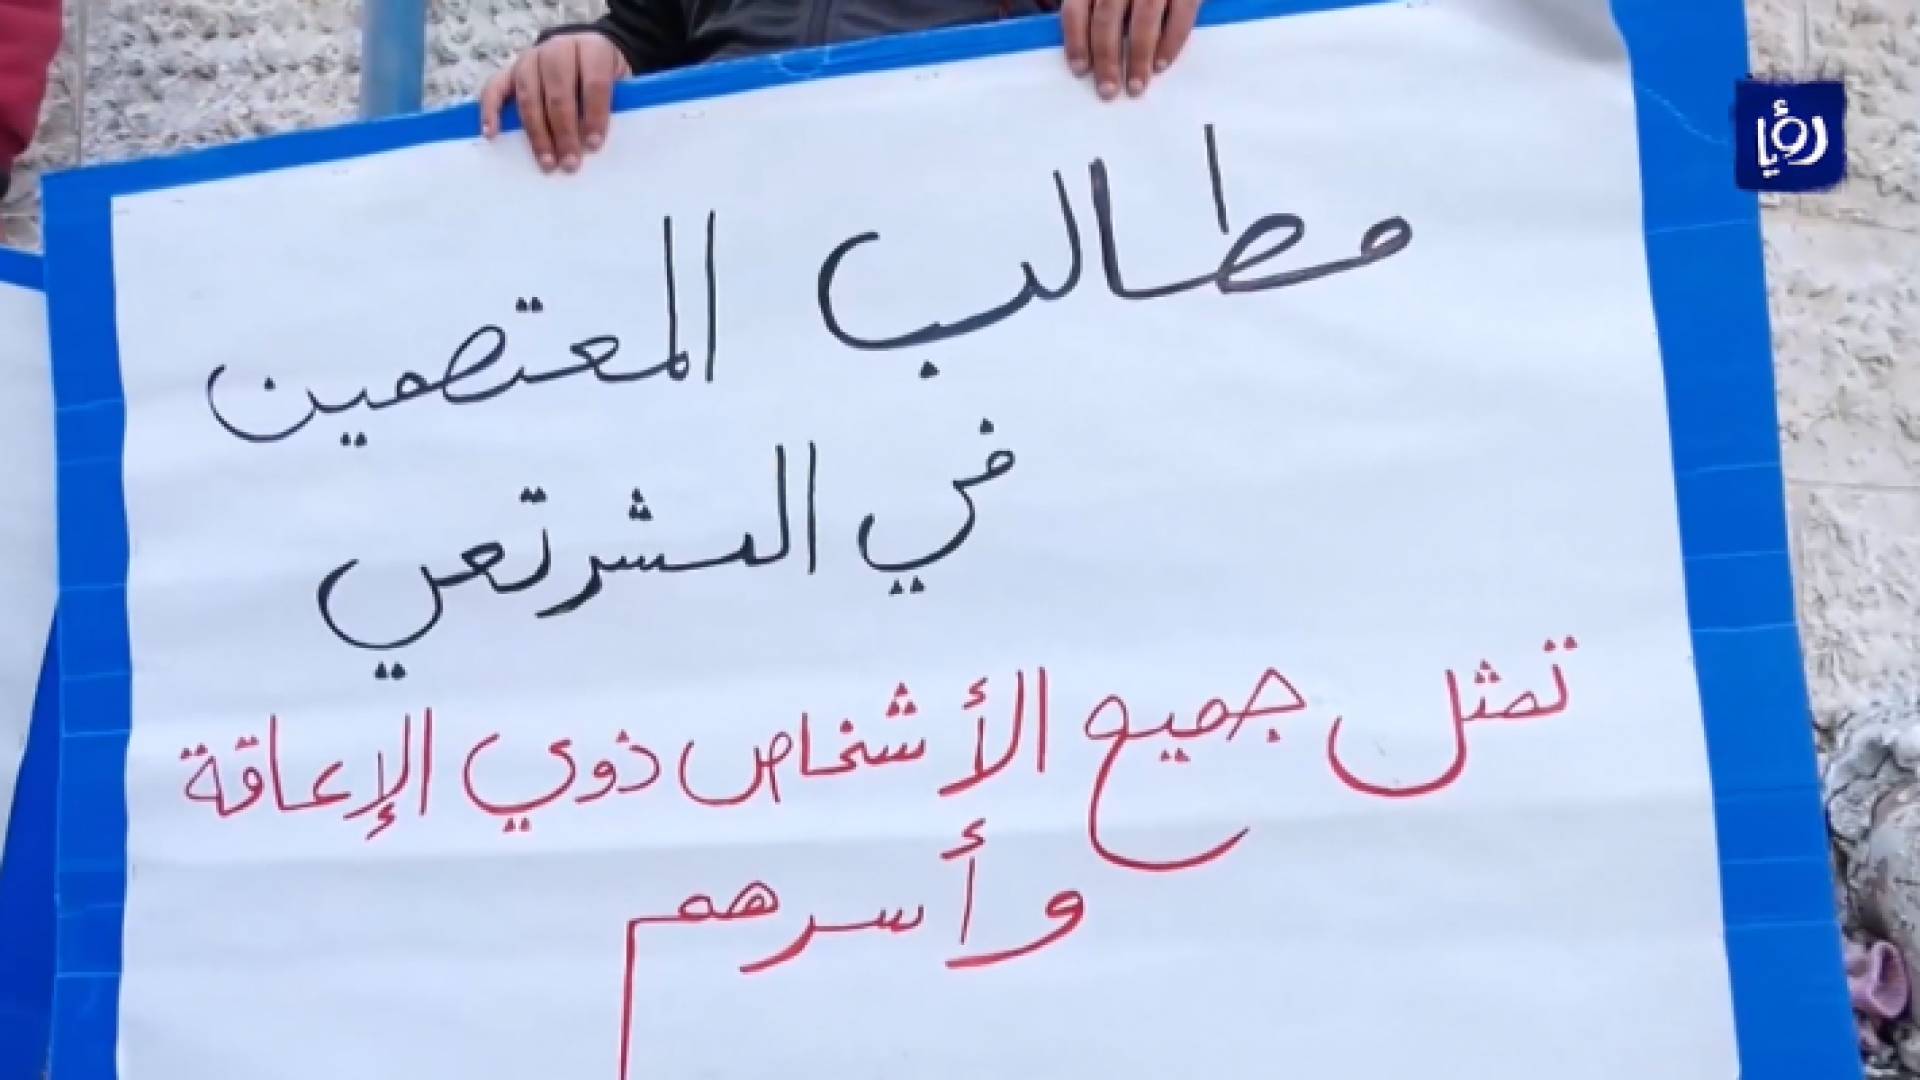 رؤيا
مطالب المعتصمين
في التشرتعي
تمثل جميع الأشخاص ذوي الإعاقة
وأسرهم